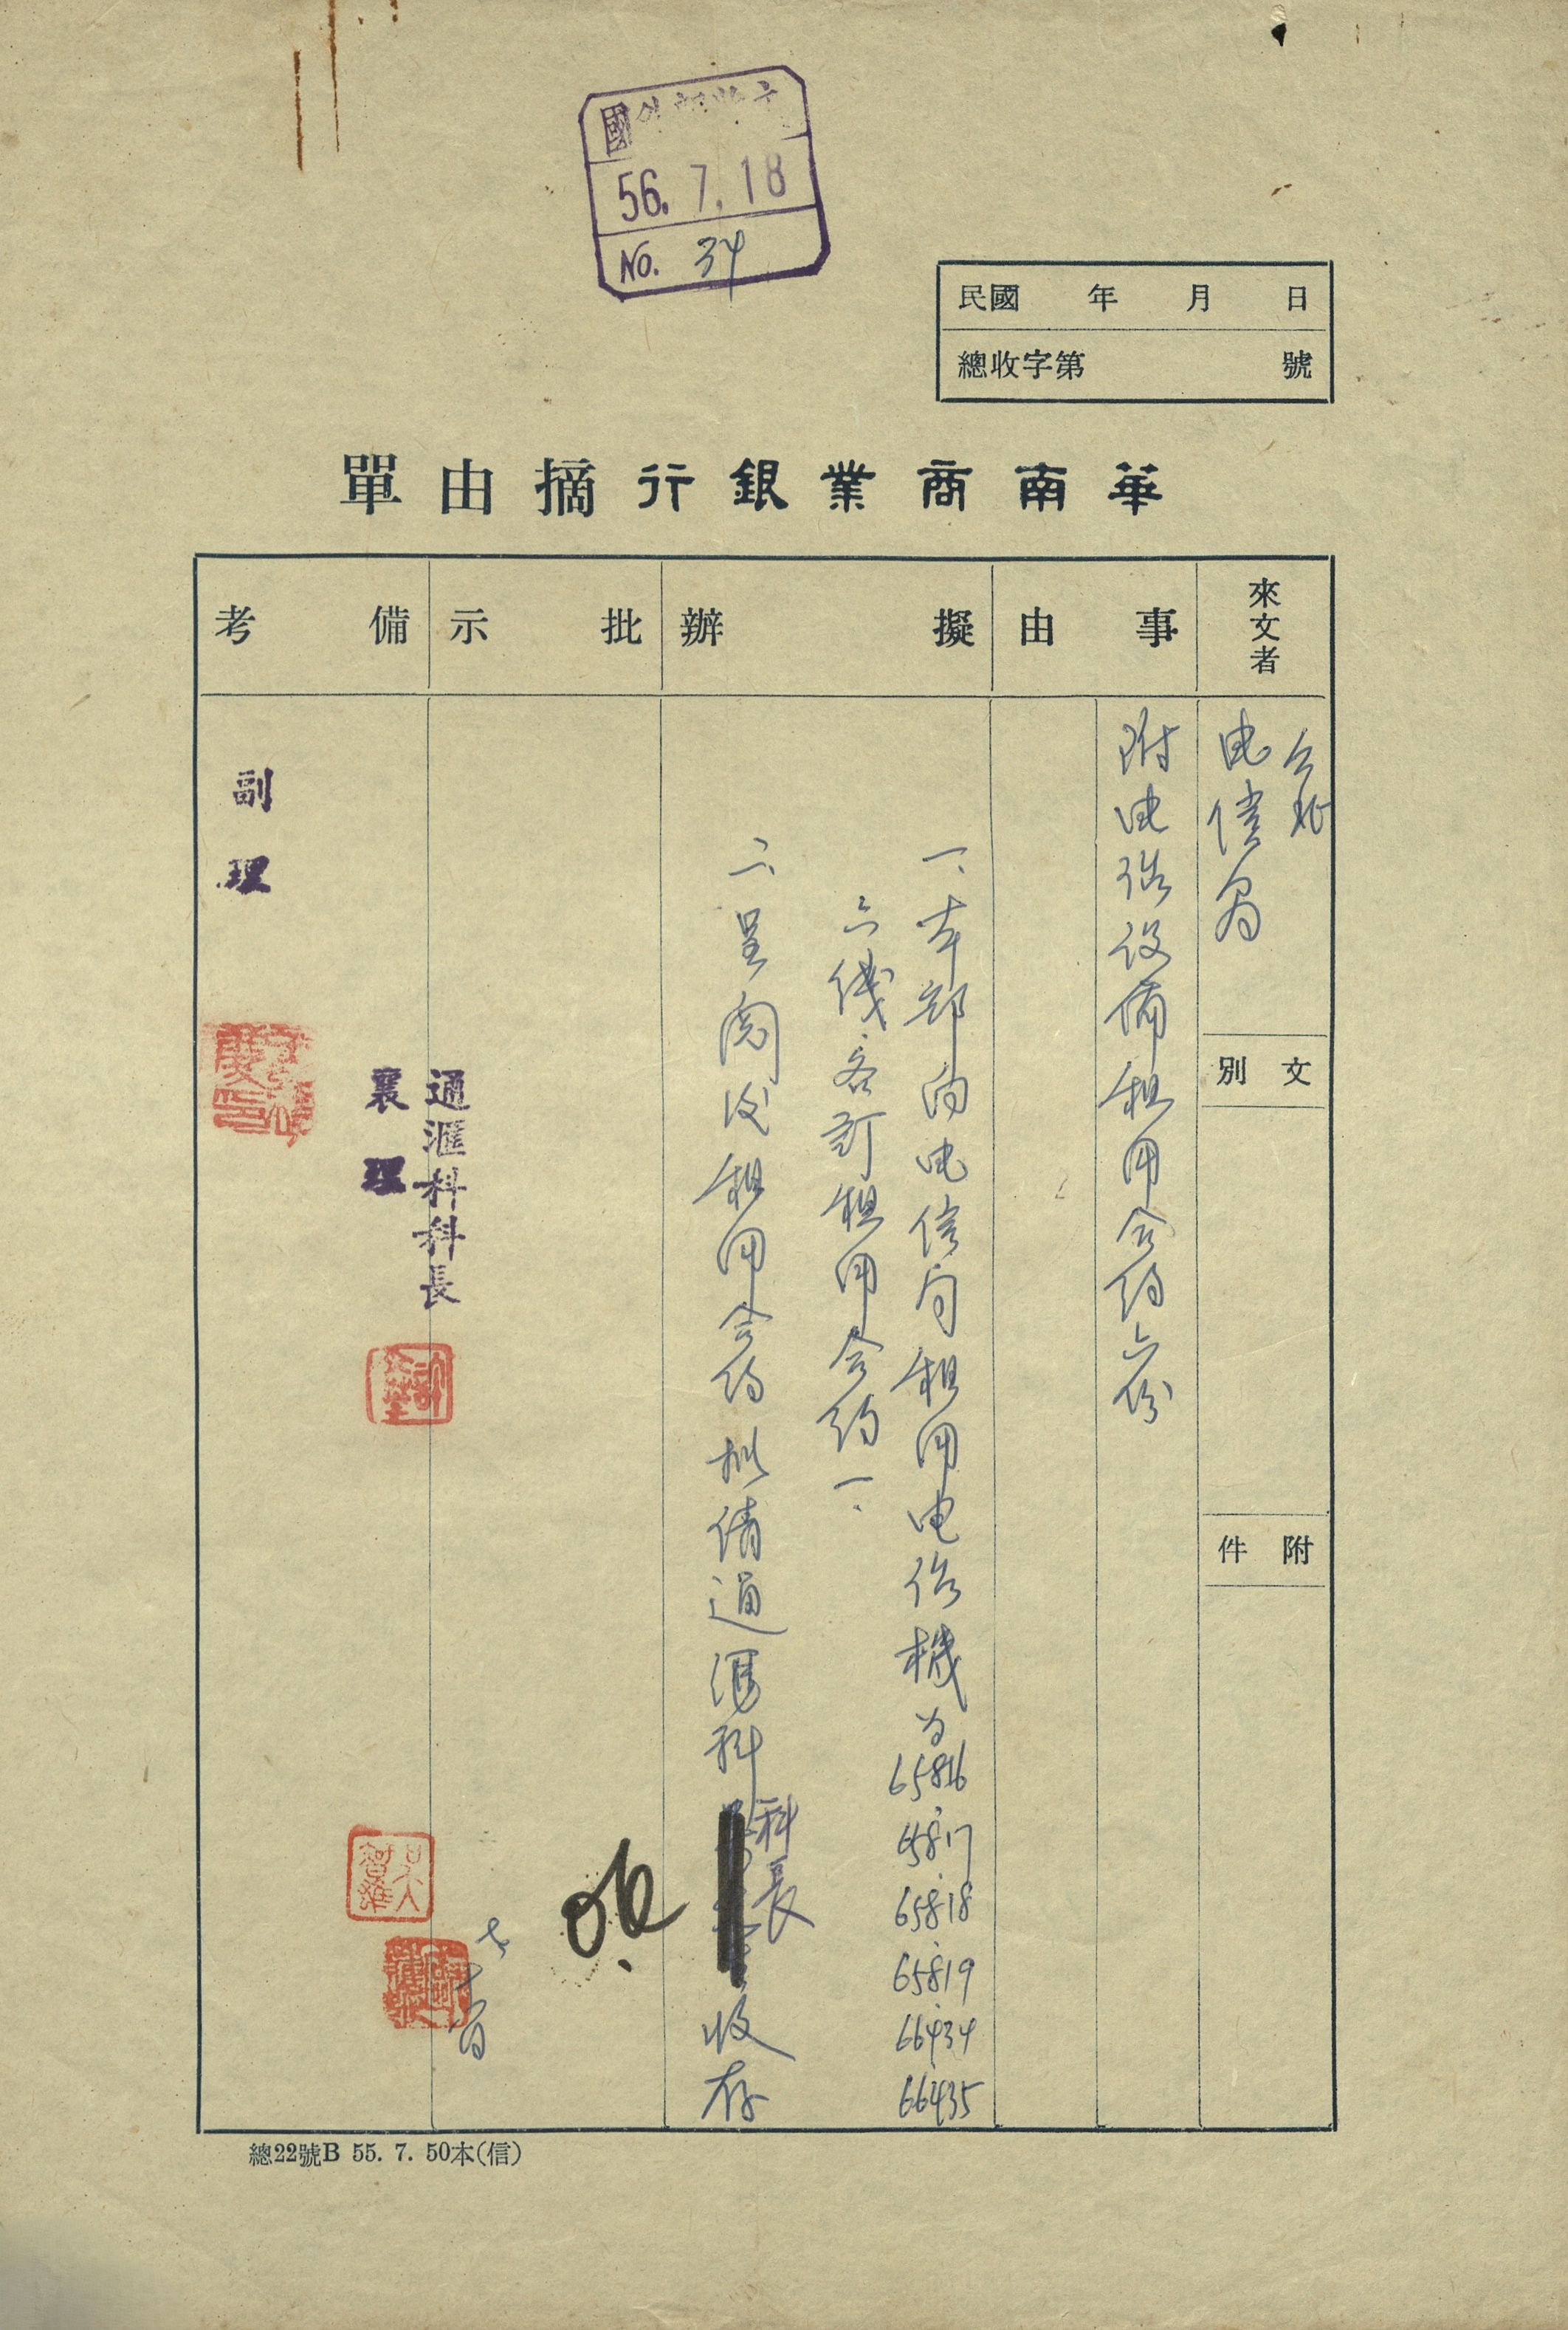 國外部收文
56. 7. 18
No. 34
民國 年 月 日
總收字第 號
華南商業銀行摘由單
來文者
事由
擬辦
批示
備考
台北
电信局
文別
附件
附电话设备租用合约六份
一、本部向电信局租用电话機为65816、65817、65818、65819、66434、66435
六线各訂租用合约一.
二、呈閱後租用合约拟请通匯科科長收存
OK.
通滙科科長
襄理
副理
總22號B 55. 7. 50本(信)